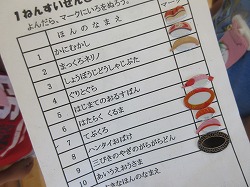 1ねんすいせん
よんだら、マークにいろをぬろう。
ほんのなまえ
マーク
1 かにむかし
2 まっくろネリノ
3 しょうぼうじどうしゃじぷた
4 ぐりとぐら
5 はじめてのおるすばん
6 はたらくくるま
7 てぶくろ
8 ハンタイおばけ
9 三びきのやぎのがらがらどん
10 あいうえおうさま
すきなほんのなまえ